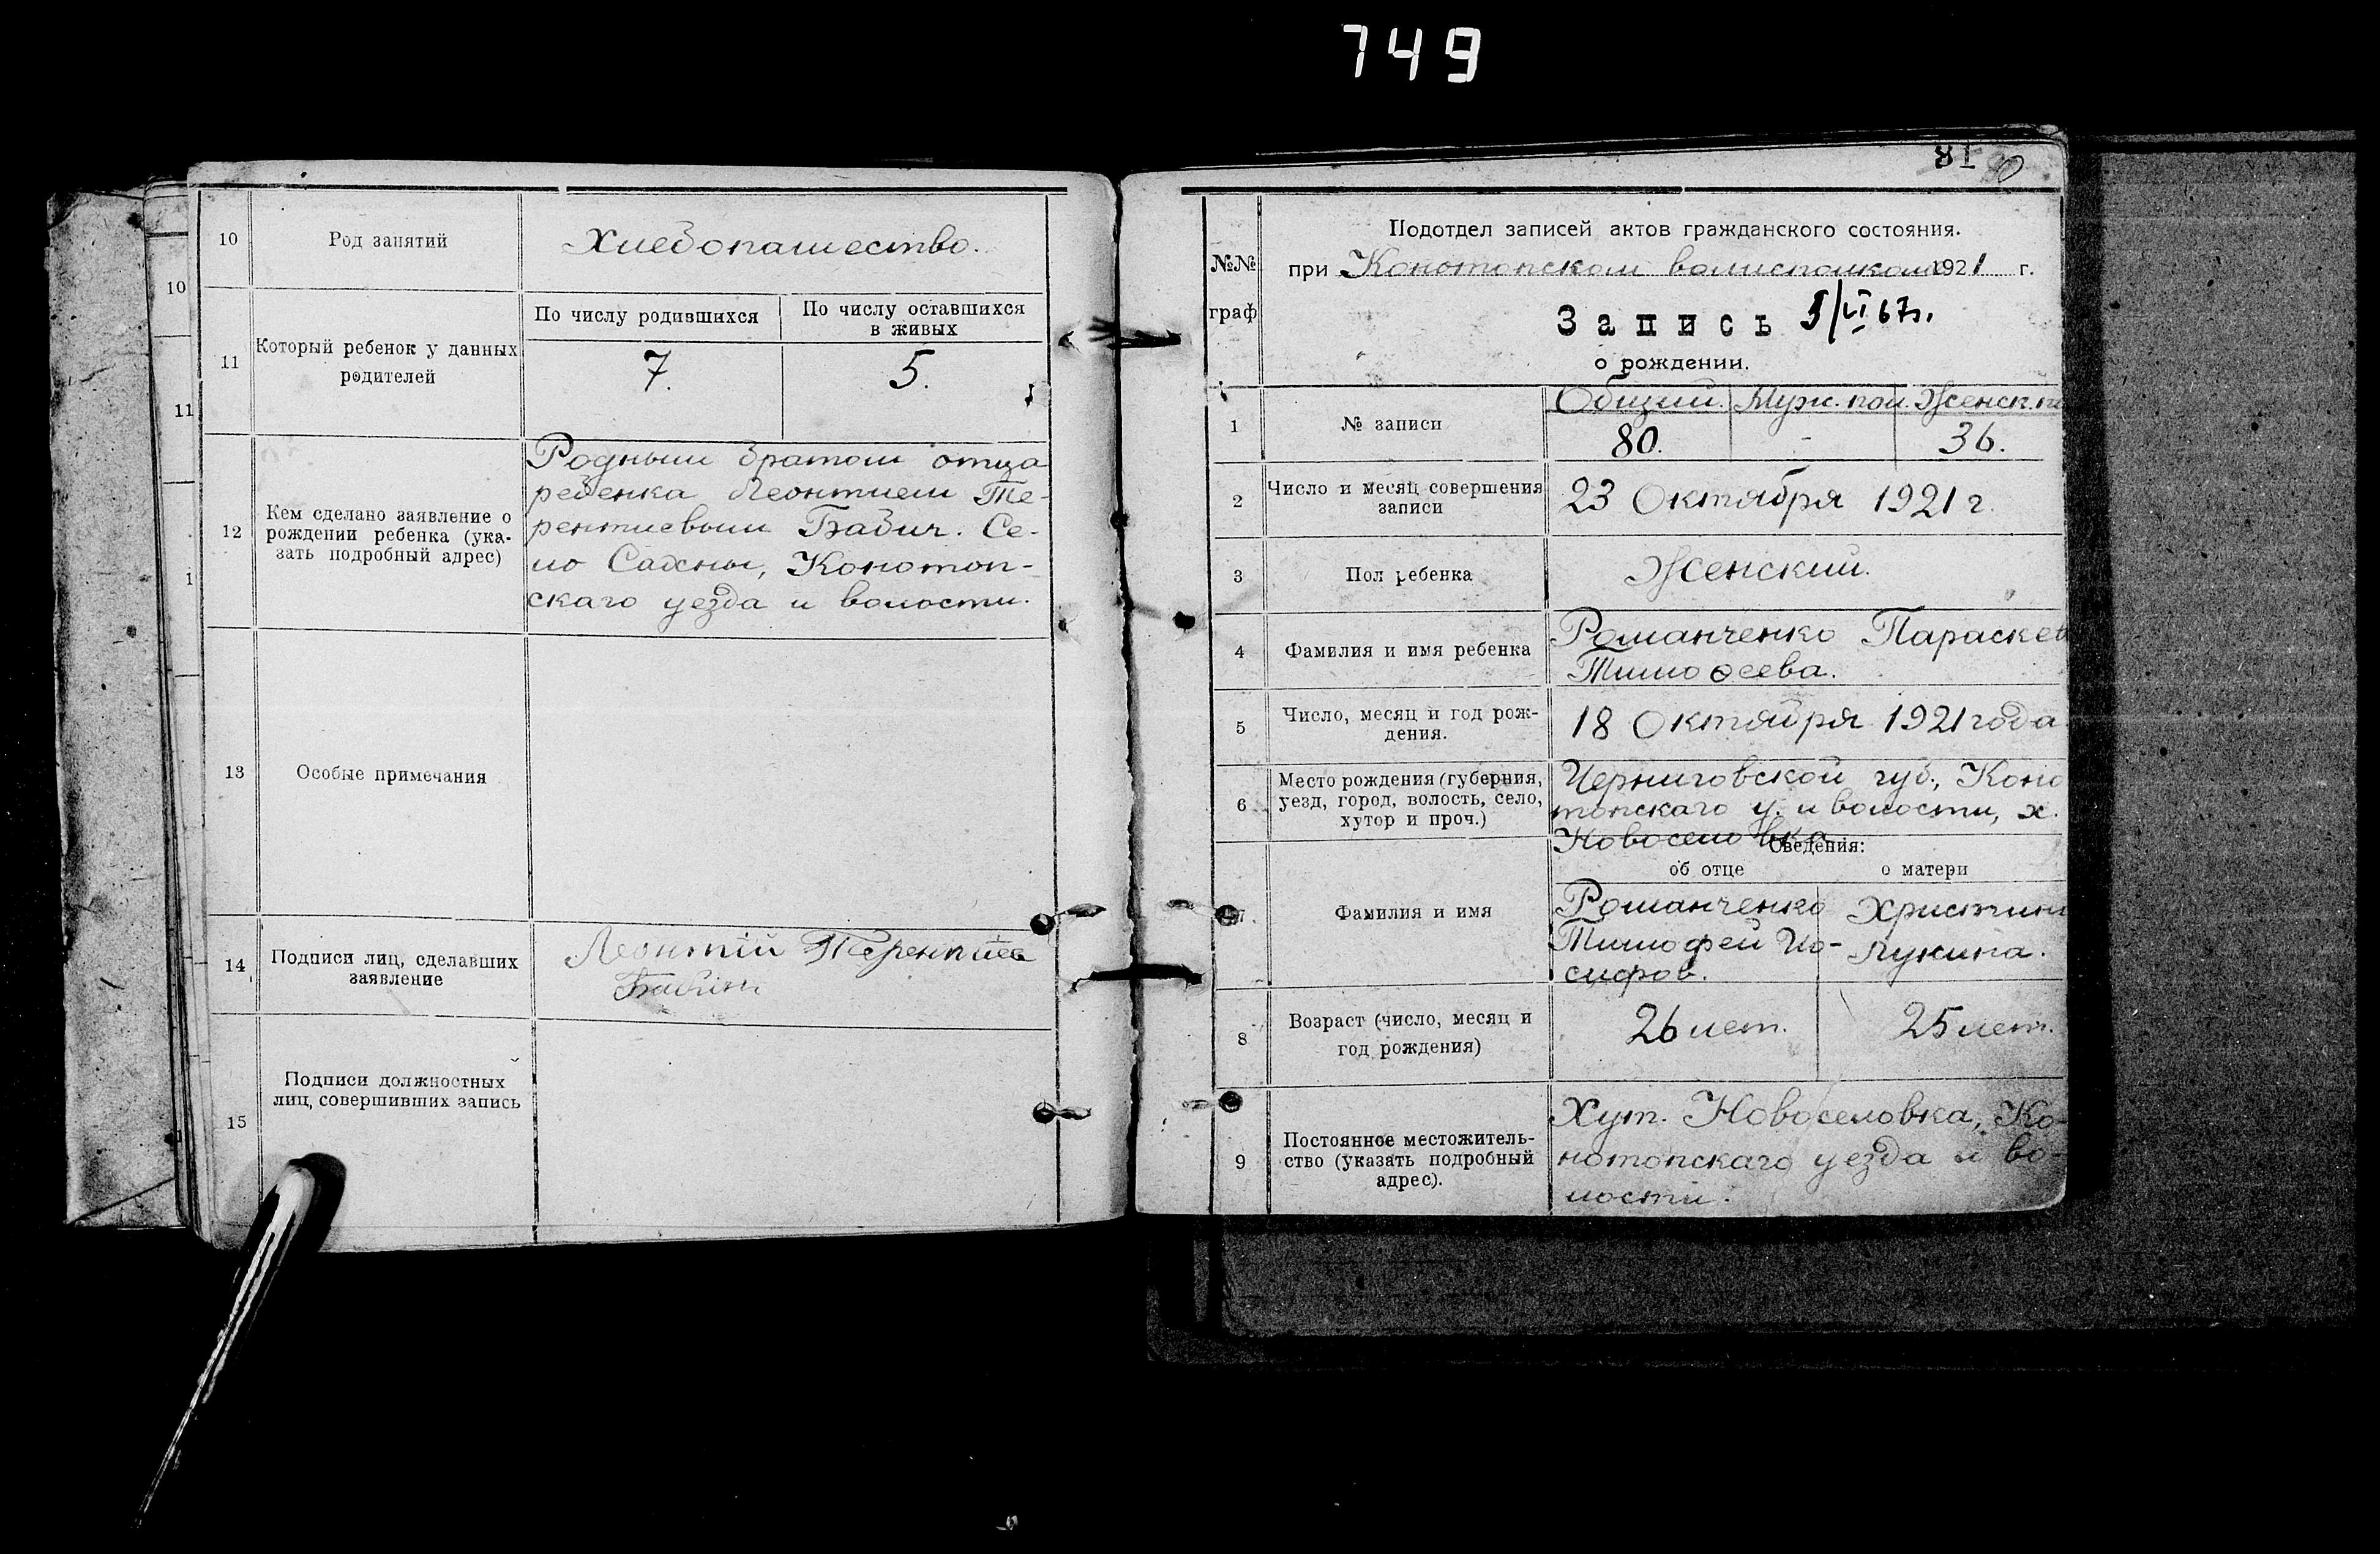 749
10
Род занятий
Хлебопашество.
10
11
Который ребенок у данных
родителей
По числу родившихся
По числу оставшихся
в живых
7.
5.
11
12
Кем сделано заявление о
рождении ребенка (ука-
зать подробный адрес)
Родным братом отца
ребенка Леонтием Те-
рентиевым Бабич. Се-
ло Сахны, Конотоп-
скаго уезда и волости.
1
13
Особые примечания
14
Подписи лиц, сделавших
заявление
Леонтій Терентиев
15
Подписи должностных
лиц, совершивших запись
81
№№
граф
Подотдел записей актов гражданского состояния.
при Конотопском волисполкоме 1921 г.
Запись
67г.
о рождении.
1
№ записи
Общий. Муж. пол. Женск. по
80. - 36.
2
Число и месяц совершения
записи
23 Октября 1921 г.
3
Пол ребенка
Женский.
4
Фамилия и имя ребенка
Романченко Параскев
Тимоѳеева.
5
Число, месяц и год рож-
дения.
18 Октября 1921 года
6
Место рождения (губерния,
уезд, город, волость, село,
хутор и проч.)
Черниговской губ., Коно
топскаго у. и волости, х.
Новоселовка
Сведения:
об отце
о матери
7.
Фамилия и имя
Романченко
Тимофей Ио-
сифов.
Христина
Лукина.
8
Возраст (число, месяц и
год рождения)
26 лет.
25 лет.
9
Постоянное местожитель-
ство (указать подробный
адрес).
Хут. Новоселовка, Ко-
нотопскаго уезда и во-
лости.